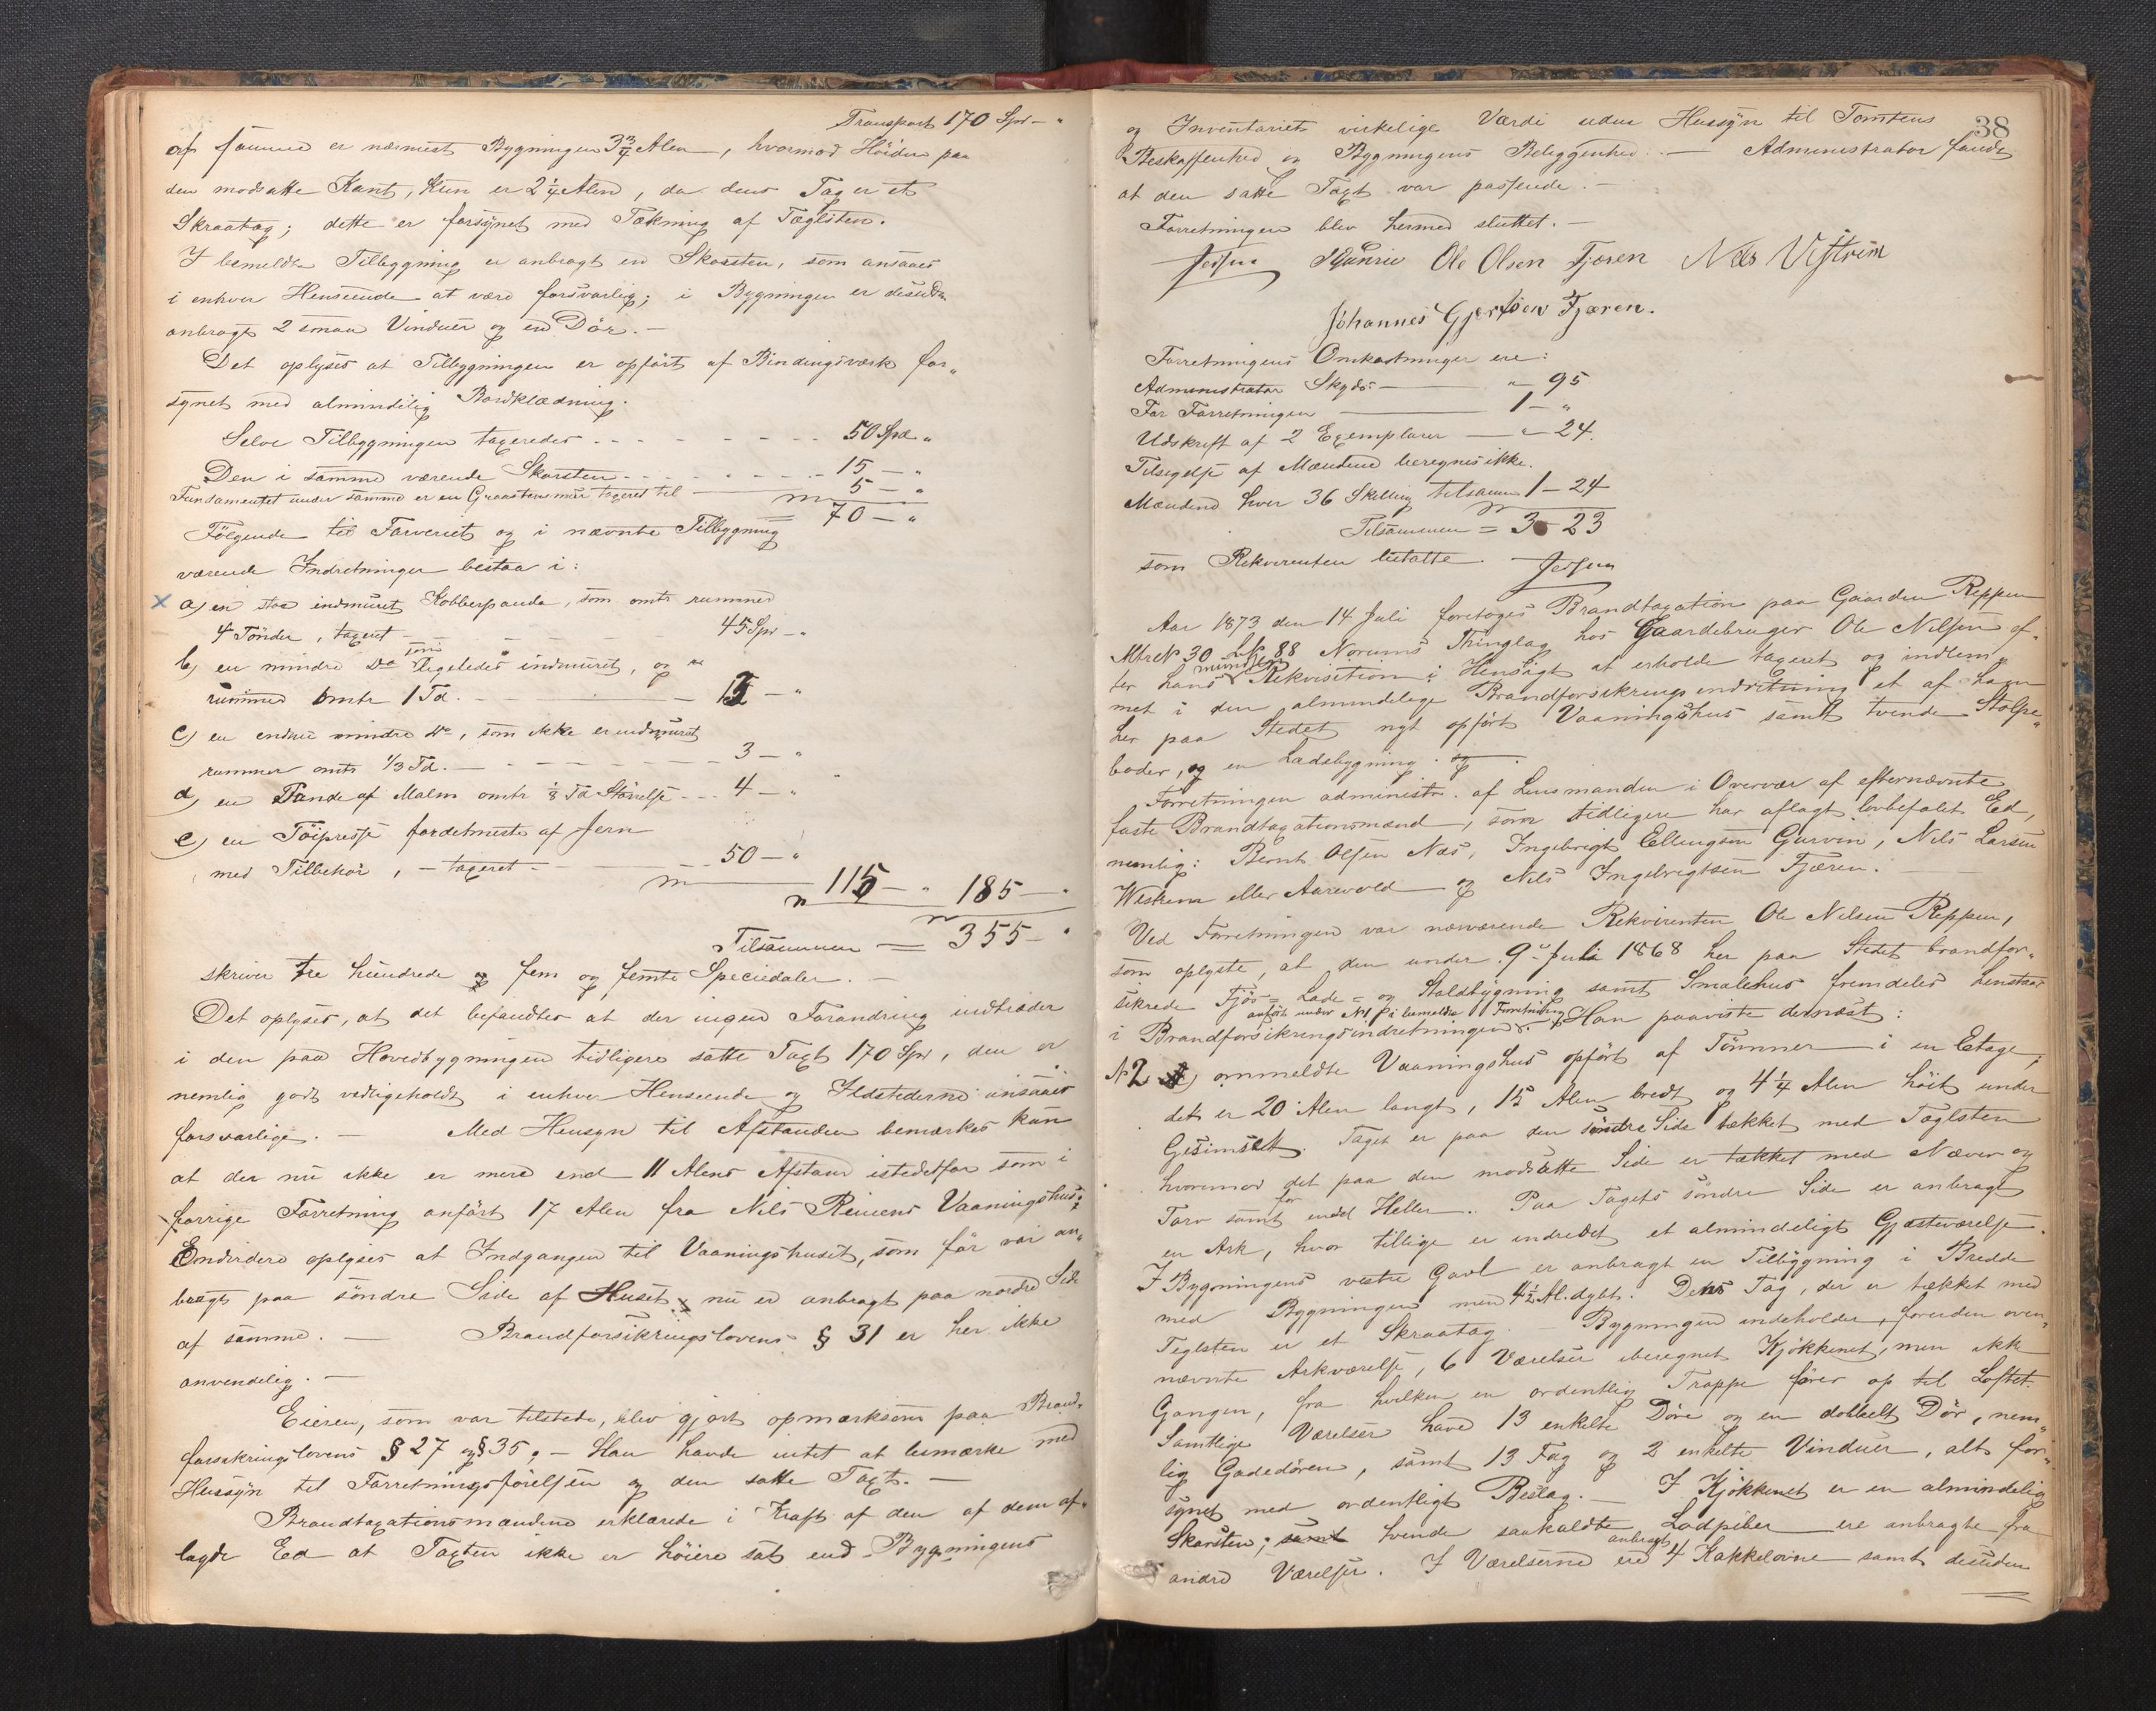 Transport 170 Spd – "
af samme er nærmest Bygningen 3 3/4 Alen, hvormod Höiden paa
den modsatte Kant, kun er 2 1/4 Alen, da dens Tag er et
Skraatag; dette er forsynet med Tækning af Taglsten.
I bemeldte Tilbygning er anbragt en Skorsten, som ansaaes
i enhver Henseende at være forsvarlig; i Bygningen er desuden
anbragt 2 smaa Vinduer og en Dör. –
Det oplyses at Tilbygningen er opfört af Bindingsværk for„
synet med almindelig Bordklædning.
Selve Tilbygningen taxeredes - - - - 50 Spd "
Den i samme værende Skorsten - - - - 15 – "
Fundamentet under samme er en Graastensmur taxeret til — 5 – "
= 70 – "
Fölgende til Farveriet og i nævnte Tilbygning
værende Indretninger bestaa i:
a) en stor indmuret Kobberpande, som omtr rummer
4 Tönder, taxeret - - - 45 Spd – "
b) en mindre Do som ligeledes indmuret, og
rummer omtr 1 Td. - - - –"
c) en endnu mindre do, som ikke er indmuret
rummer omtr 1/3 Td. - - - - 3 – "
d) en Pande af Malm omtr 1/8 Td Störrelse - - - 4 – "
e) en Töipresse fordetmeste af Jern
med Tilbehör, – taxeret - - - 50 – "
115 – " 185 – "
Tilsammen = 355 – "
skriver tre hundrede og fem og femti Speciedaler. –
Det oplyses, at det befandtes at der ingen Forandring indtræder
i den paa Hovedbygningen tidligere satte Taxt 170 Spd, den er
nemlig godt vedligeholdt i enhver Henseende og Ildstederne ansaaes
forsvarlige. – Med Hensyn til Afstanden bemærkes kun
at der nu ikke er mere end 11 Alens Afstand istedetfor som i
forrige Forretning anfört 17 Alen fra Nils Vaaningshus;
Endvidere oplyses at Indgangen til Vaaningshuset, som för var an„
bragt paa söndre Side af Huset, nu er anbragt paa nordre Side
af samme. — Brandforsikringslovens § 31 er her ikke
anvendelig. –
Eieren, som var tilstede, blev gjort opmærksom paa Brand„
forsikringslovens § 27 og § 35, – Han havde intet at bemærke med
Hensyn til Forretningsförelsen og den satte Taxt. –
Brandtaxationsmændene erklærede i Kraft af den af dem af„
lagde Ed at Taxten ikke er höiere sat end Bygningens
38
og Inventariets virkelige Værdi uden Hensyn til Tomtens
Beskaffenhed og Bygningens Beliggenhed. — Administrator fandt
at den satte Taxt var passende. –
Forretningen blev hermed sluttet. –
Ole Olsen Fjæren Nils
Johannes Gjertsen Fjæren.
Forretningens Omkostninger ere:
Administrator Skyds — " 95
For Forretningen — 1 – "
Udskrift af 2 Exemplarer — " 24.
Tilsigelse af Mændene beregnes ikke.
Mændene hver 36 Skilling tilsamm 1 – 24
Tilsammen = 3 – 23
som Rekvirenten betalte.
Aar 1873 den 14 Juli foretoges Brandtaxation paa Gaarden Reppen
Mtr No 30 Lb No 88 Norums Thinglag hos Gaardebruger Ole Nilsen ef„
ter hans mundtlige Rekvisition i Hensigt at erholde taxeret og indlem„
met i den almindelige Brandforsikringsindretning et af ham
her paa Stedet nyt opfört Vaaningshus samt tvende Stolpe„
boder, og en Ladebygning.
Forretningen administr. af Lensmanden i Overvær af efternævnte
faste Brandtaxationsmænd, som tidligere har aflagt lovbefalet Ed,
nemlig: Bernt Olsen Næs, Ingebrigt Ellingsen Gurvin, Nils Larsen
eller Aarevold og Nils Ingebrigtsen Fjæren. –
Ved Forretningen var nærværende Rekvirenten Ole Nilsen Reppen,
som oplyste, at den under 9de Juli 1868 her paa Stedet brandfor„
sikrede Fjös = Lade = og Staldbygning samt Smalehus fremdeles henstaar
i Brandforsikringsindretningen anfört under No 1 i bemeldte Forretning. Han paaviste dernæst:
No 2 ommeldte Vaaningshus opfört af Tömmer i en Etage;
det er 20 Alen langt, 15 Alen bredt og 4 1/4 Alen höit under
Gesimset. Taget er paa den söndre Side tækket med Taglsten
hvormod det paa den modsatte Side er tækket med Næver og
Torv samt Heller. Paa Tagets söndre Side er anbragt
en Ark, hvor tillige er indredet et almindeligt Gjæsteværelse.
I Bygningens vestre Gavl er anbragt en Tilbygning i Bredde
med Bygningen men 4 1/2 Al. dybt. Dens Tag, der er tækket med
Teglsten er et Skraatag. – Bygningen indeholder, foruden oven„
nævnte Arkværelse, 6 Værelser iberegnet Kjökkenet, men ikke
Gangen, fra hvilken en ordentlig Trappe förer op til Loftet.
Samtlige Værelser have 13 enkelte Döre og en dobbelt Dör, nem„
lig Gadedören, samt 13 Fag og 2 enkelte Vinduer, alt for„
synet med ordentligt Beslag. – I Kjökkenet er en almindelig
Skorsten; samt tvende saakaldte Lodpiber ere anbragte fra
andre Værelser. I Værelserne ere anbragt 4 Kakkelovne samt desuden